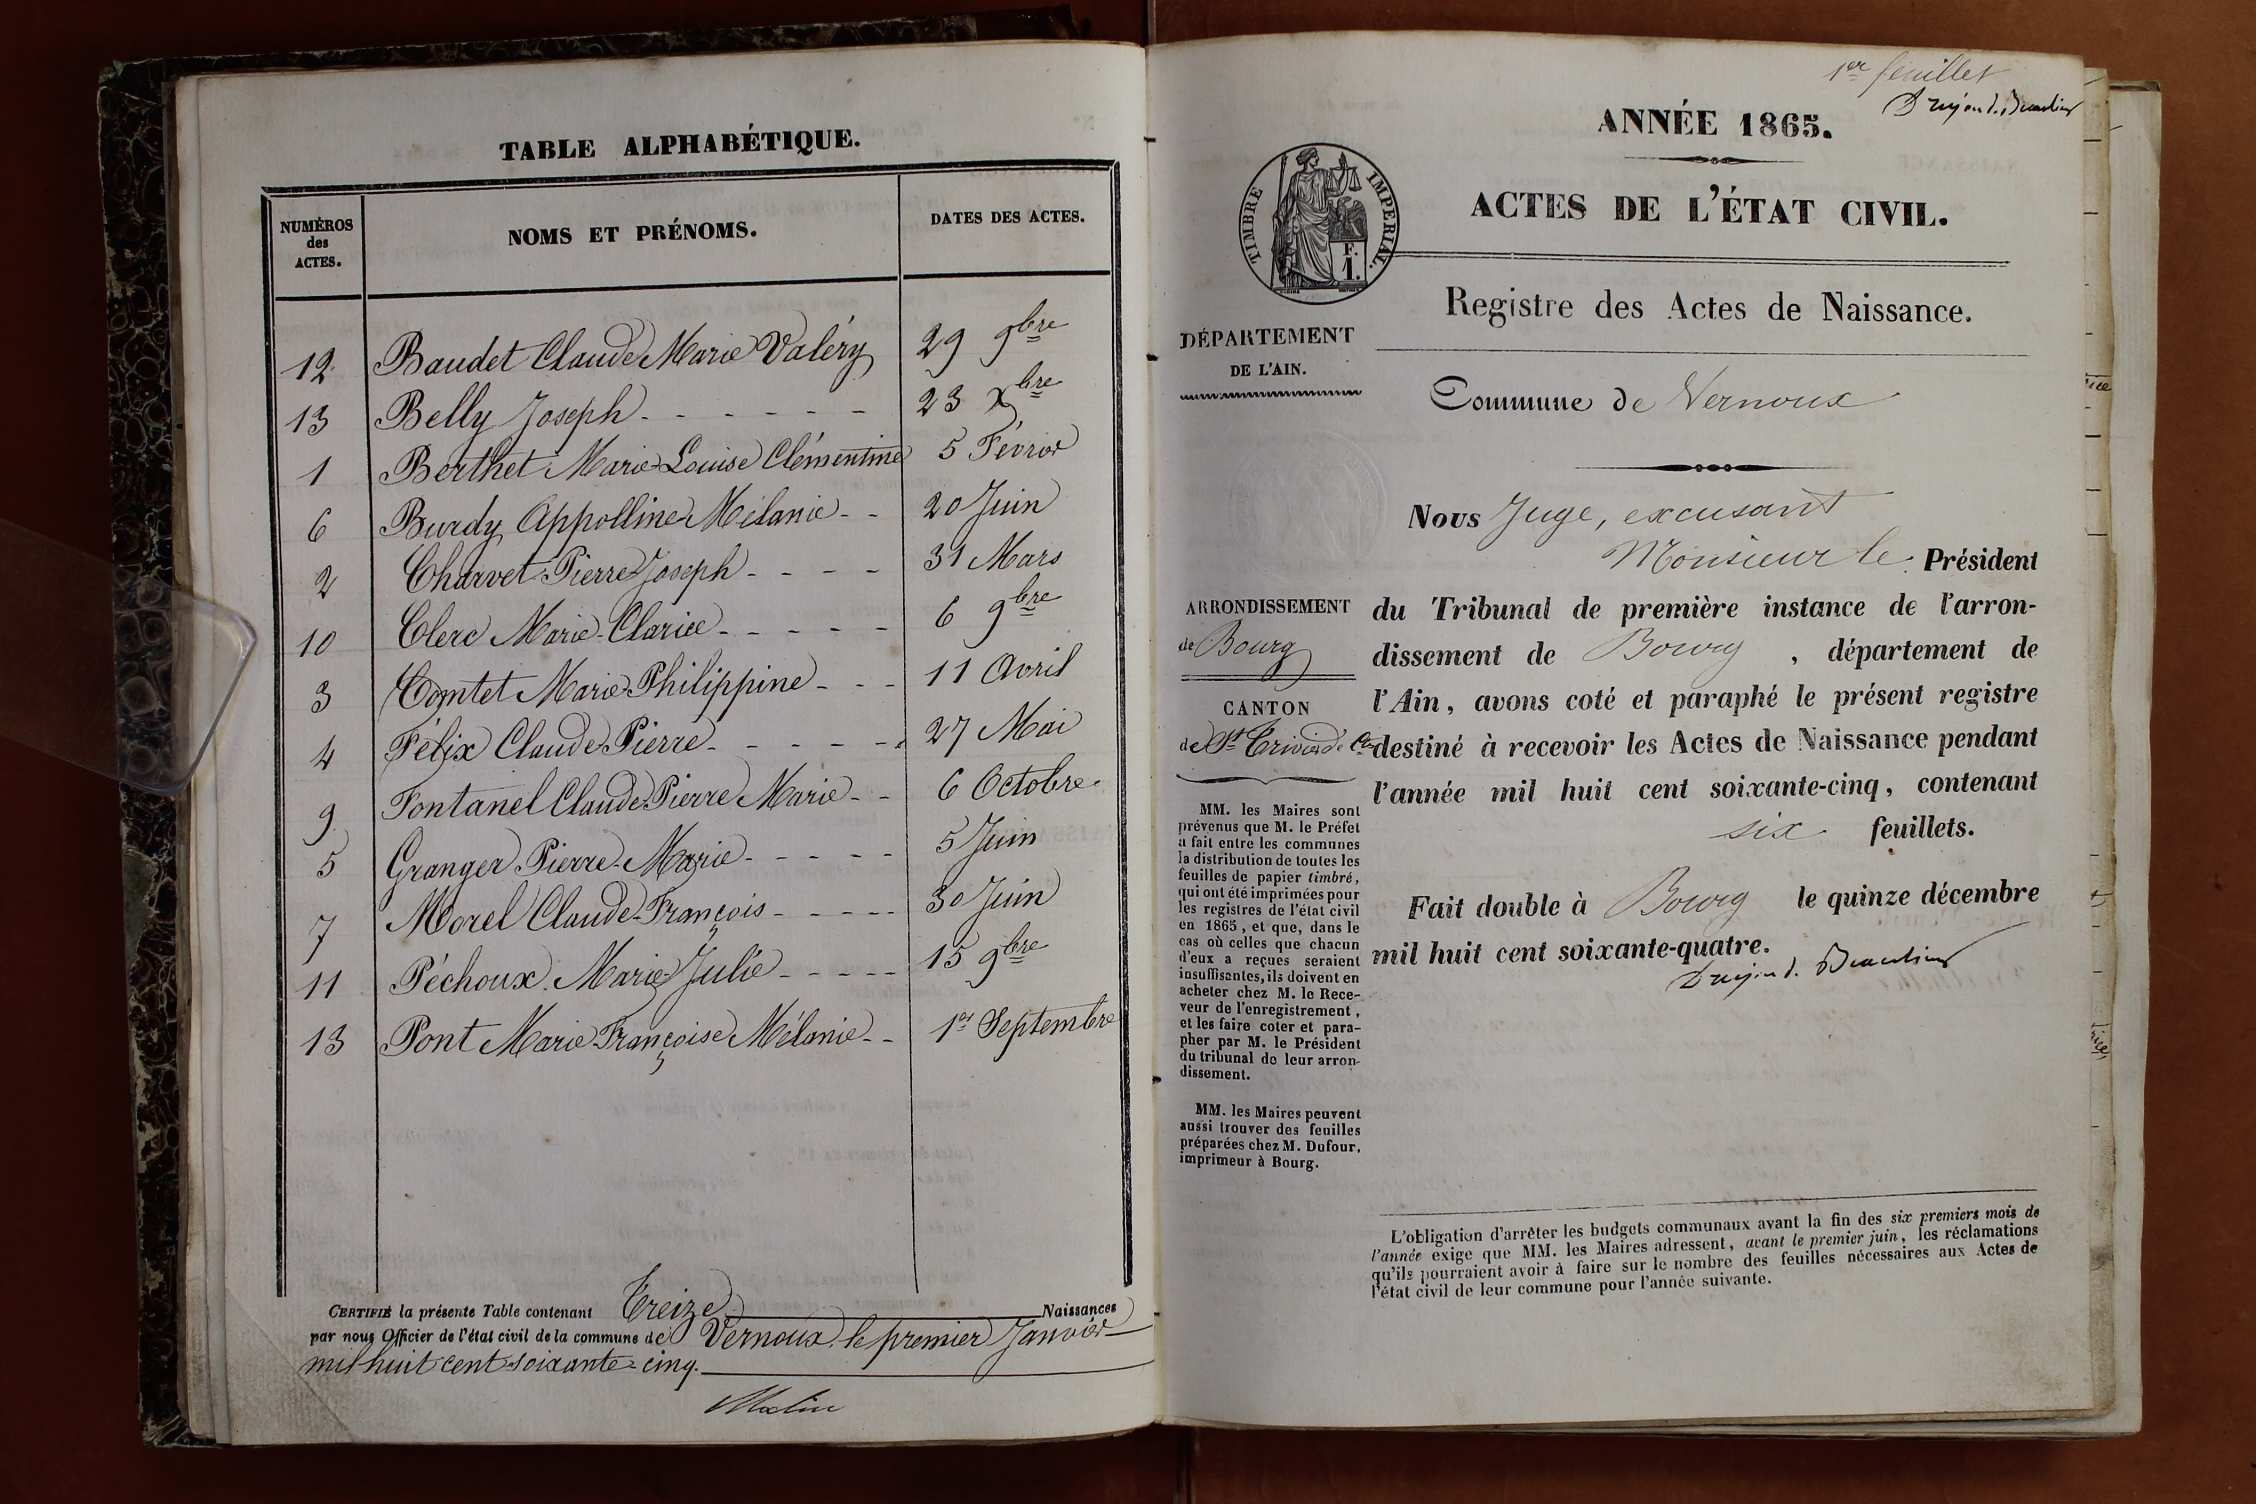 TABLE ALPHABÉTIQUE.
NUMÉROS des ACTES. NOMS ET PRÉNOMS. DATES DES ACTES.
12 Baudet Claude Marie Valéry 29 9bre
13 Belly Joseph - - - - - - 23 Xbre
1 Berthet Marie-Louise Clémentine 5 Févrièr
6 Burdy Appolline-Mélanie - - 20 Juin
2 Charvet Pierre Joseph - - - - 31 Mars
10 Clerc Marie-Clarice - - - - - 6 9bre
3 Comtet Marie-Philippine - - - 11 Avril
4 Félix Claude-Pierre - - - - - 27 Mai
9 Fontanel Claude-Pierre Marie - - 6 Octobre
5 Granger Pierre-Marie - - - - - 5 Juin
7 Morel Claude-François - - - - - 30 Juin
11 Péchoux Marie Julie - - - - - 15 9bre
13 Pont Marie-Françoise Mélanie - - 1er Septembre
CERTIFIÉ la présente Table contenant Treize Naissances
par nous Officier de l'état civil de la commune de Vernoux, le premier Janvier
mil huit cent soixante-cinq.
1er feuillet
ANNÉE 1865.
TIMBRE IMPÉRIAL.
F.
1.
ACTES DE L'ÉTAT CIVIL.
Registre des Actes de Naissance.
DÉPARTEMENT
DE L'AIN.
Commune de Vernoux
Nous Juge, excusant
Monsieur le Président
du Tribunal de première instance de l'arron-
dissement de Bourg, département de
l'Ain, avons coté et paraphé le présent registre
destiné à recevoir les Actes de Naissance pendant
l'année mil huit cent soixante-cinq, contenant
six feuillets.
Fait double à Bourg le quinze décembre
mil huit cent soixante-quatre.
ARRONDISSEMENT
de Bourg
CANTON
de St Trivier de Ctes
MM. les Maires sont
prévenus que M. le Préfet
a fait entre les communes
la distribution de toutes les
feuilles de papier timbré,
qui ont été imprimées pour
les registres de l'état civil
en 1865, et que, dans le
cas où celles que chacun
d'eux a reçues seraient
insuffisantes, ils doivent en
acheter chez M. le Rece-
veur de l'enregistrement,
et les faire coter et para-
pher par M. le Président
du tribunal de leur arron-
dissement.
MM. les Maires peuvent
aussi trouver des feuilles
préparées chez M. Dufour,
imprimeur à Bourg.
L'obligation d'arrêter les budgets communaux avant la fin des six premiers mois de
l'année exige que MM. les Maires adressent, avant le premier juin, les réclamations
qu'ils pourraient avoir à faire sur le nombre des feuilles nécessaires aux Actes de
l'état civil de leur commune pour l'année suivante.